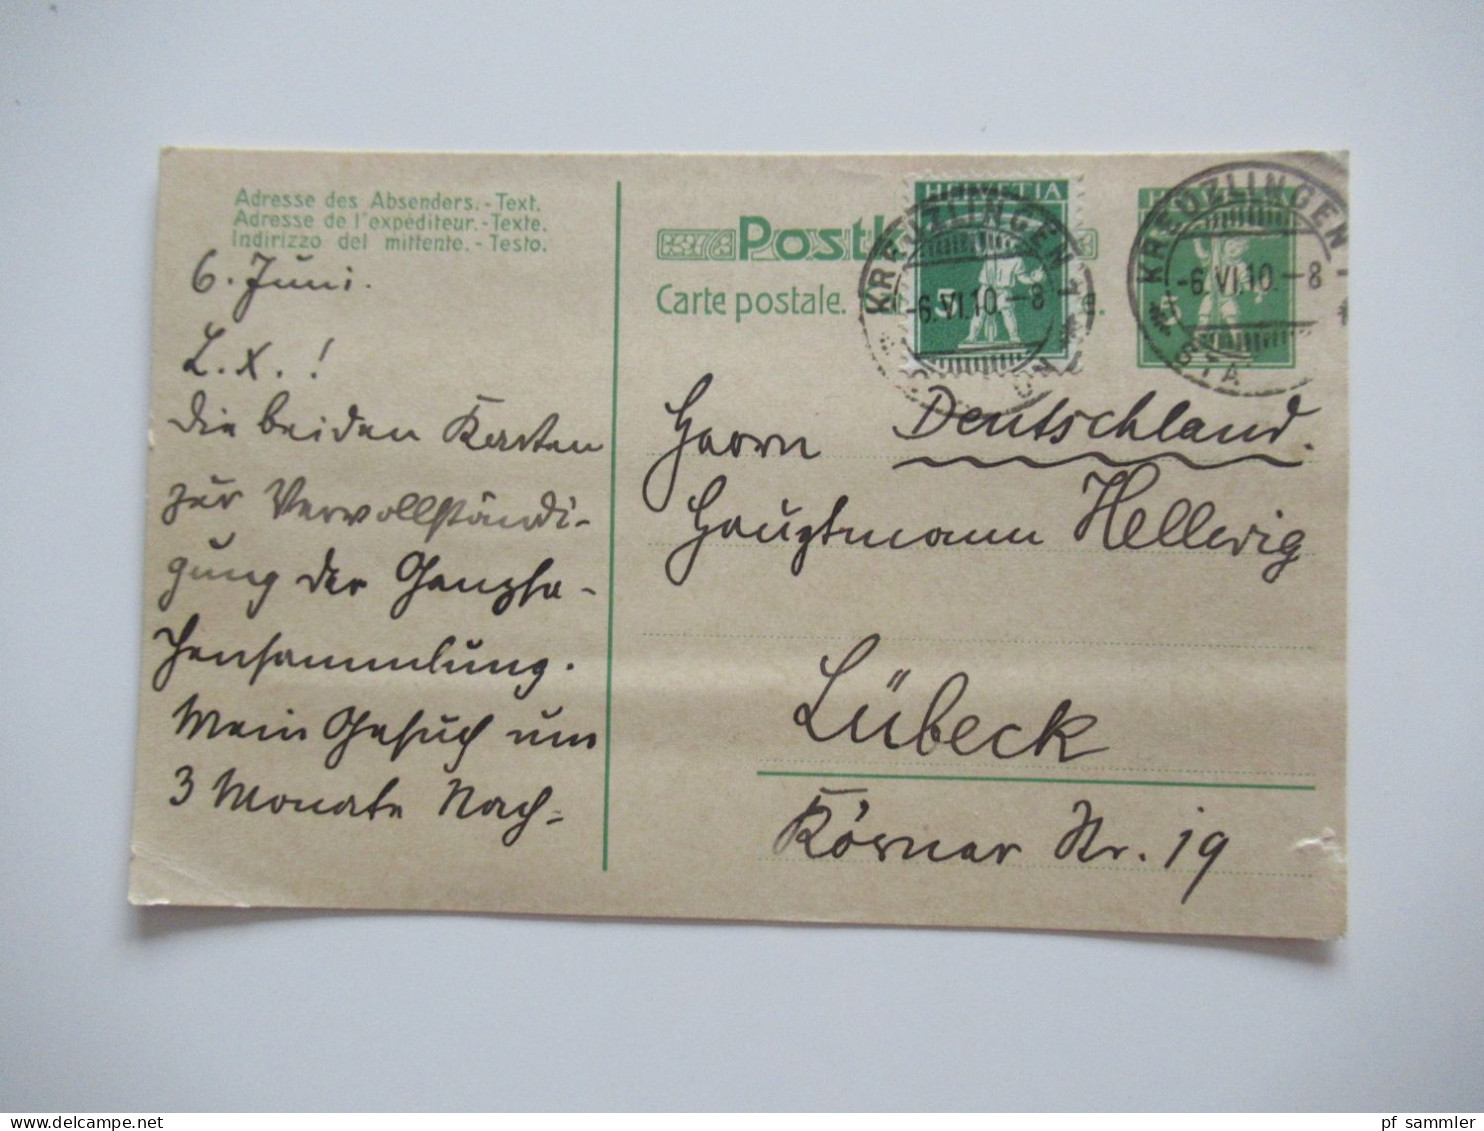 Adresse des Absenders.-Text.
Adresse de l'expéditeur.-Texte.
Indirizzo del mittente.-Testo.
6. Juni.
L.X.!
Die beiden Karten
zur Vervollständi-
gung der Ganzsa-
chensammlung.
Mein Gesuch um
3 Monate Nach-
Postk
Carte postale.
HELVETIA
5
KREUZLINGEN
-6.VI.10.-8
KREUZLINGEN
-6.VI.10.-8
5
Deutschland.
Herrn
Hauptmann Hellwig
Lübeck
Körner Nr. 19
pf sammler